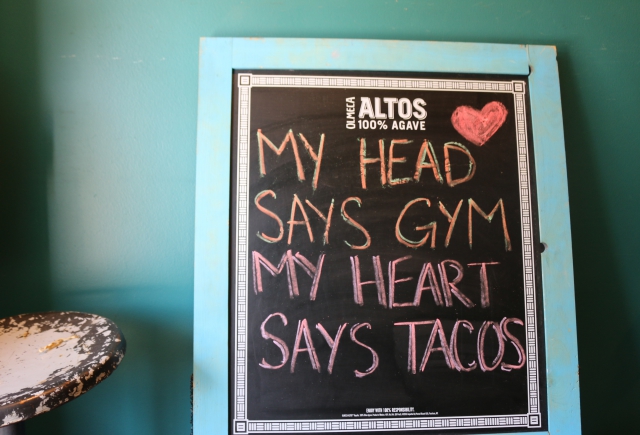 OLMECA
ALTOS
100% AGAVE
MY HEAD
SAYS GYM
MY HEART
SAYS TACOS
ENJOY WITH RESPONSIBILITY